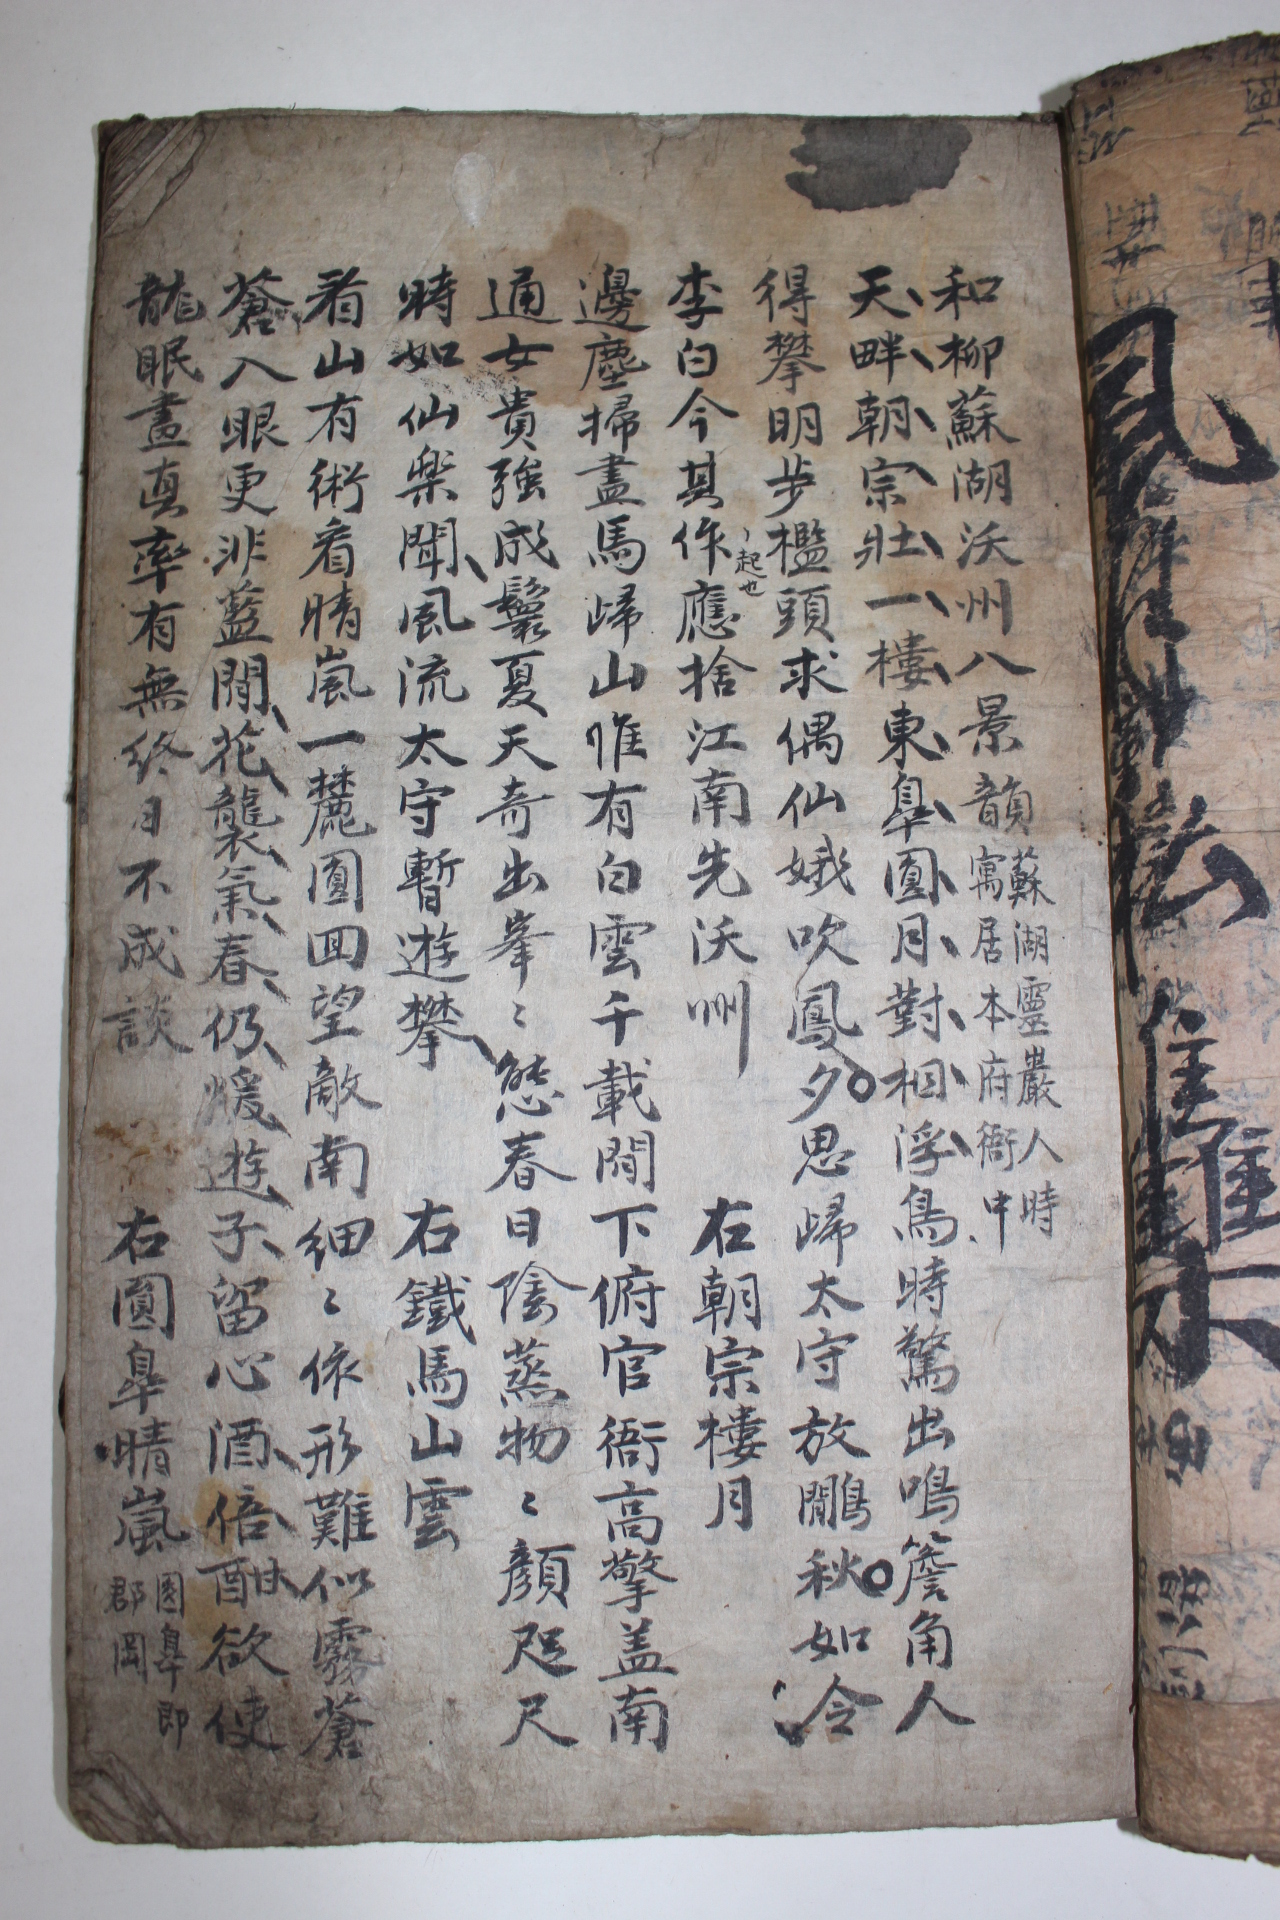 和柳蘇湖沃州八景韻
蘇湖靈巖人時
寓居本府衙中
天畔朝宗壯一樓東皐圓月對相浮鳥時驚出鳴簷角人
得攀明步檻頭求偶仙娥吹鳳夕思歸太守放鷴秋如令
李白今其作應捨江南先沃州 右朝宗樓月
起也
邊塵掃盡馬歸山惟有白雲千載閒下俯官衙高擎盖南
通女貴強成鬟夏天奇出峯〻態春日陰蒸物〻顔咫尺
時如仙樂聞風流太守暫遊攀 右鐵馬山雲
看山有術看晴嵐一麓圓回望敵南細〻依形難似霧蒼
蒼入眼更非藍閒花襲氣春仍煖遊子留心酒倍酣欲使
龍眠畫眞率有無終日不成談 右圓皐晴嵐
圓皐即
郡岡